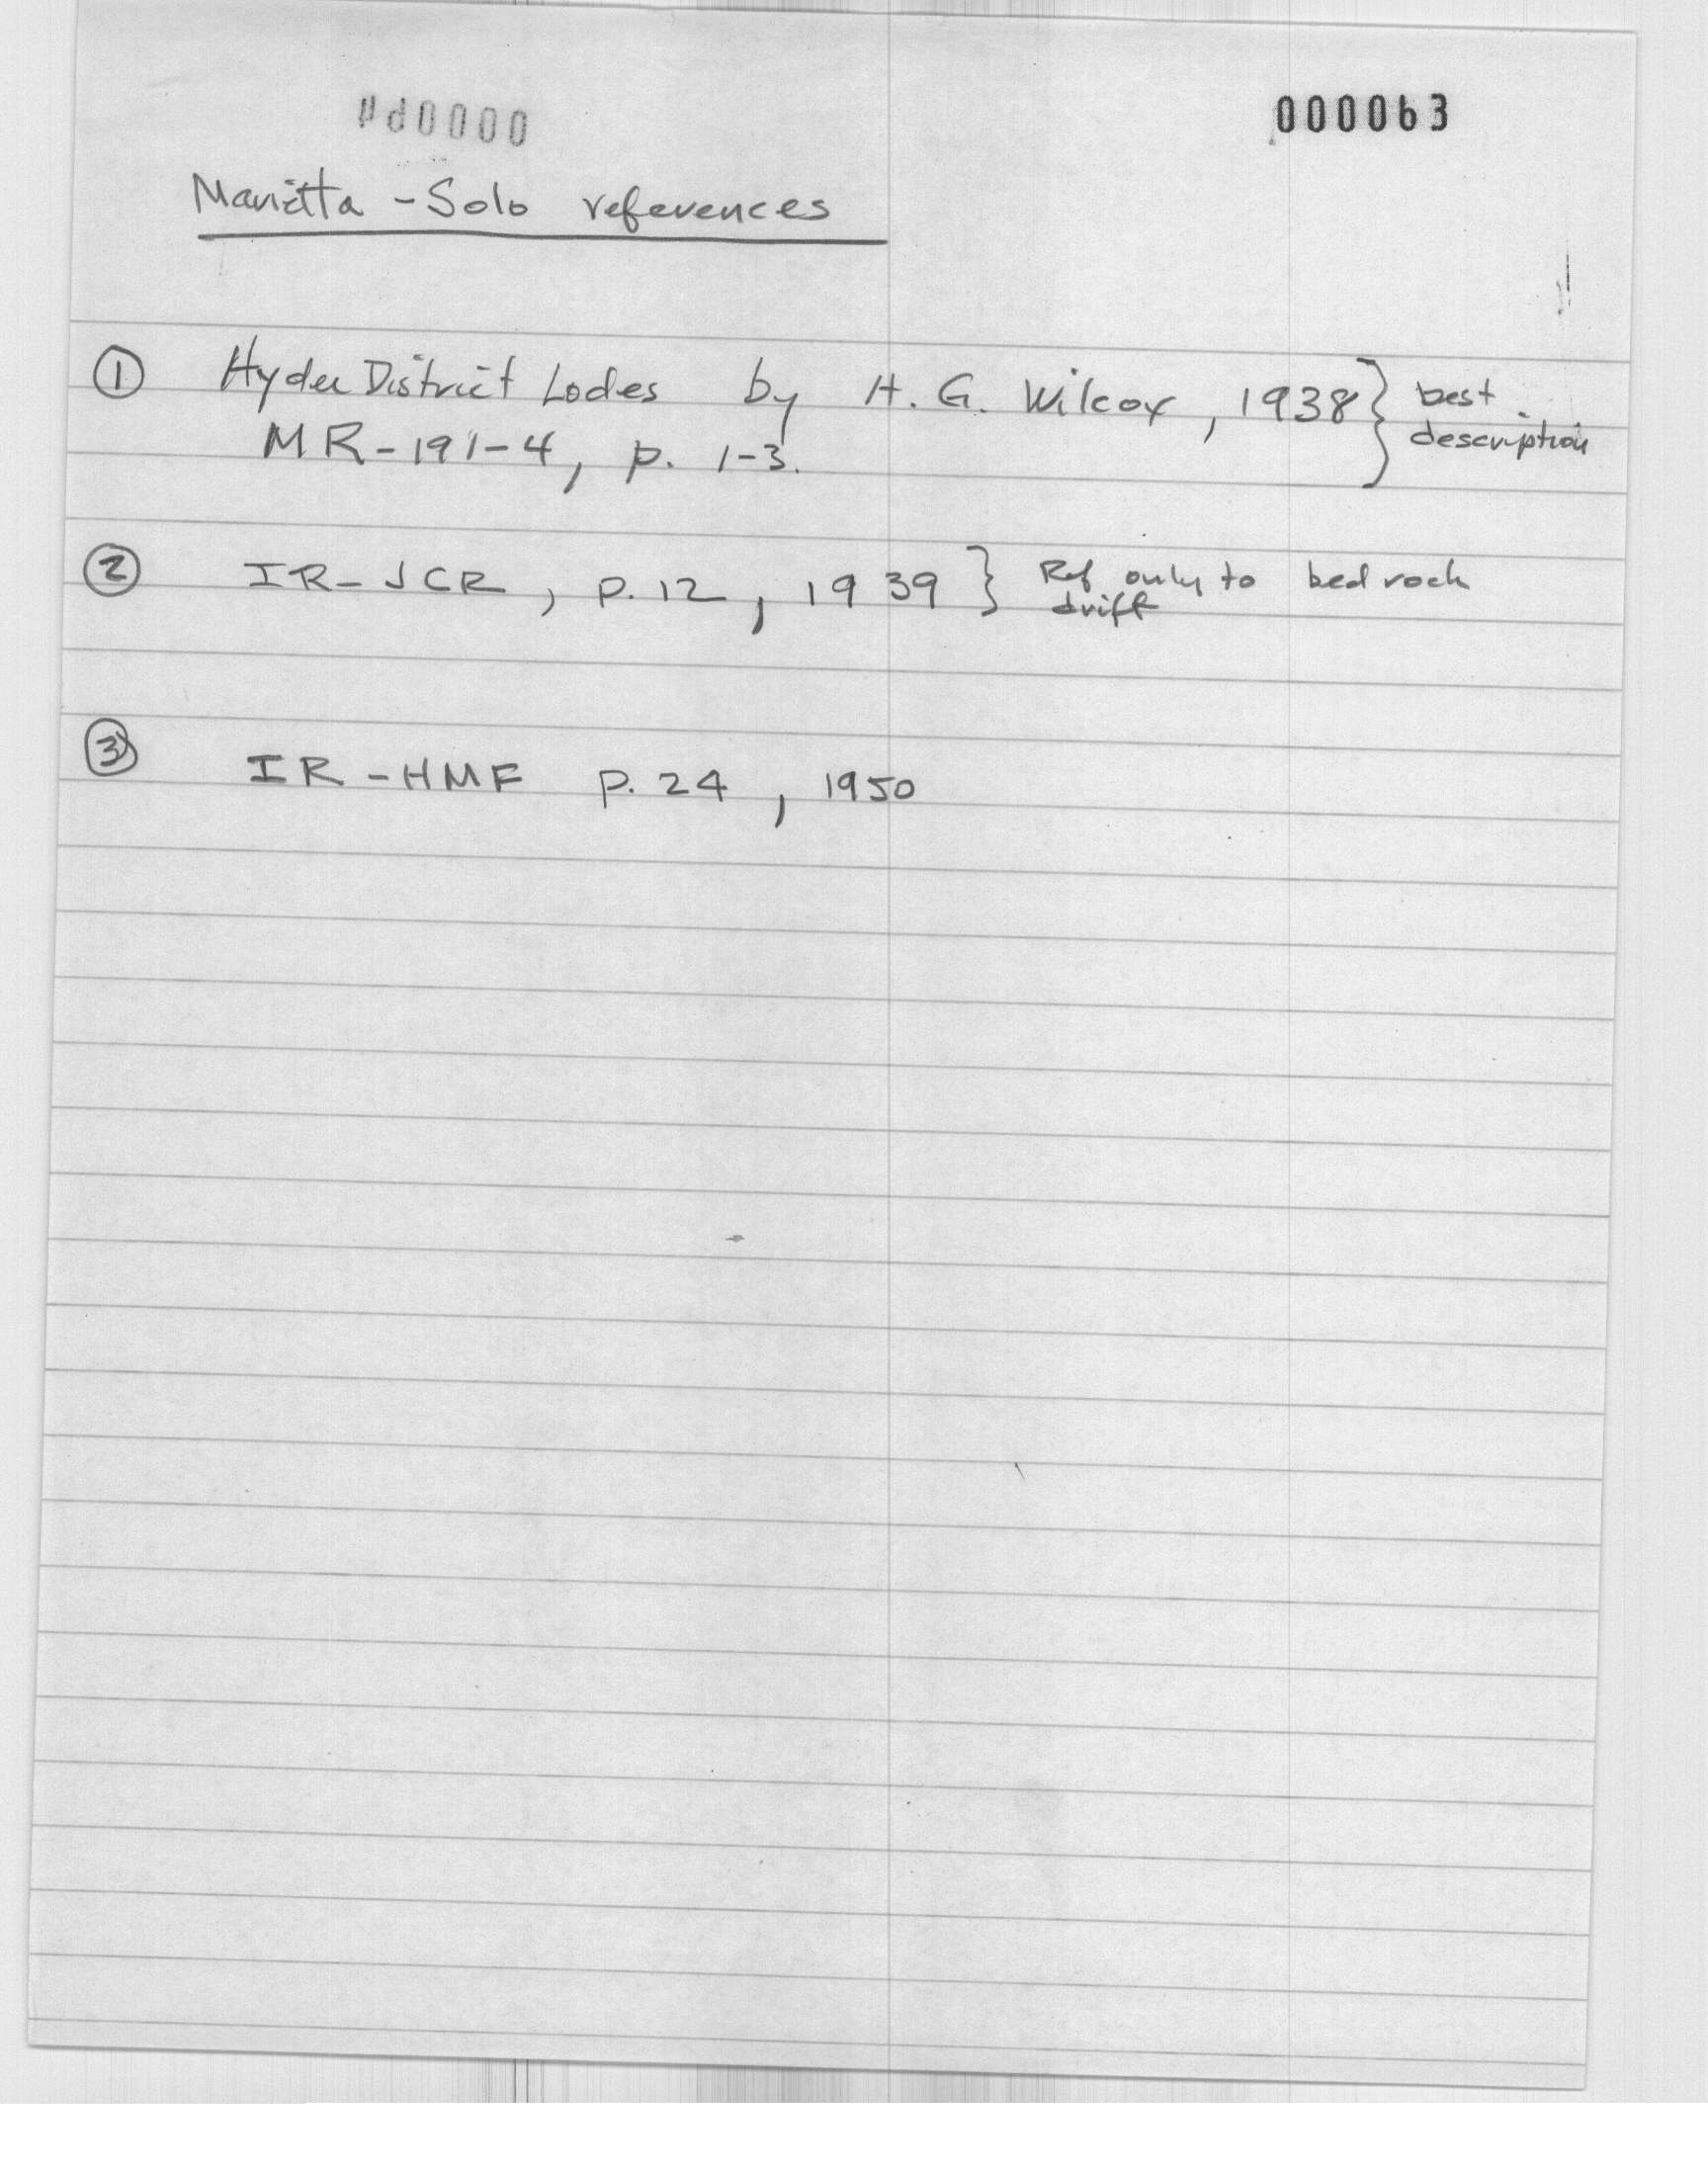 000064
000063
Marietta - Solo references
① Hyder District Lodes by H. G. Wilcox, 1938 } best
MR-191-4, p. 1-3. description
② IR-JCR, p.12, 1939 } Ref only to bed rock
drift
③ IR-HMF p. 24, 1950